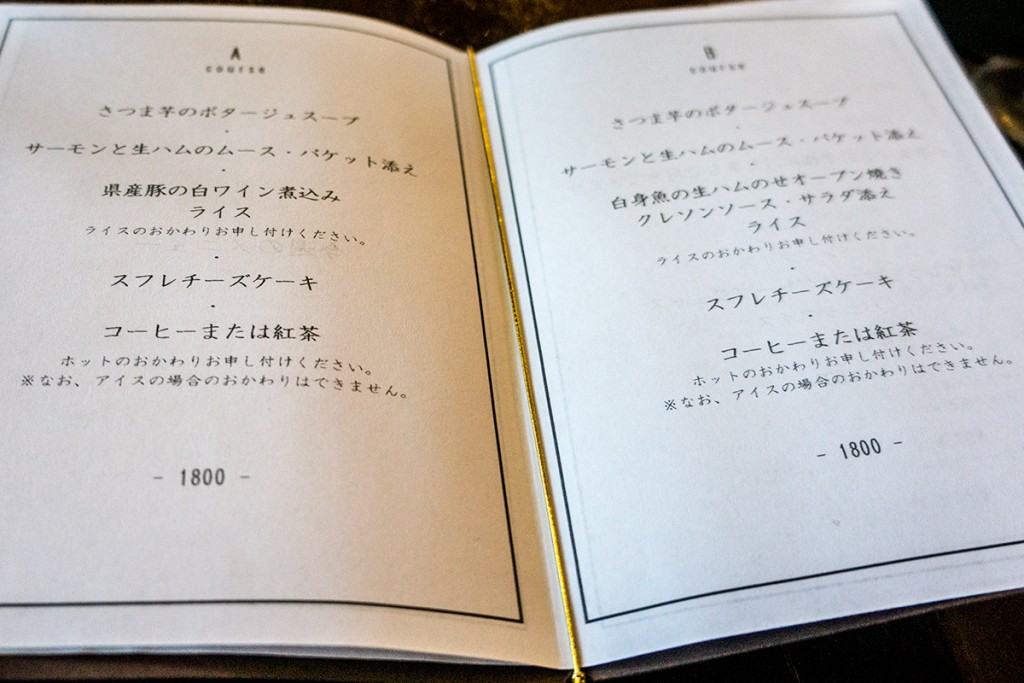 A
course
さつま芋のポタージュスープ
・
サーモンと生ハムのムース・バケット添え
・
県産豚の白ワイン煮込み
ライス
ライスのおかわりお申し付けください。
・
スフレチーズケーキ
・
コーヒーまたは紅茶
ホットのおかわりお申し付けください。
※なお、アイスの場合のおかわりはできません。
- 1800 -
B
course
さつま芋のポタージュスープ
・
サーモンと生ハムのムース・バケット添え
・
白身魚の生ハムのせオーブン焼き
クレソンソース・サラダ添え
ライス
ライスのおかわりお申し付けください。
・
スフレチーズケーキ
・
コーヒーまたは紅茶
ホットのおかわりお申し付けください。
※なお、アイスの場合のおかわりはできません。
- 1800 -